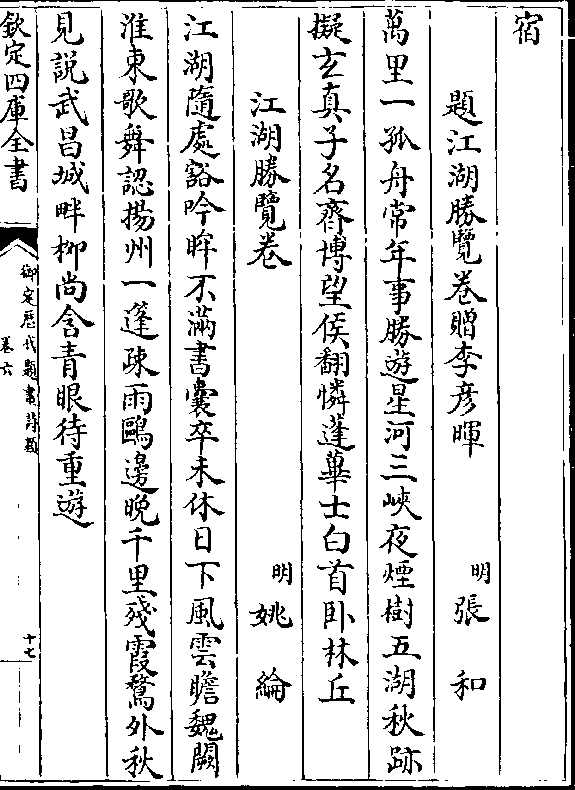 宿
題江湖勝覽卷贈李彦暉 明 張和
萬里一孤舟常年事勝遊星河三峽夜煙樹五湖秋跡
擬玄真子名齊博望侯翻憐蓬蓽士白首卧林丘
江湖勝覽卷 明 姚綸
江湖隨處豁吟眸不滿書囊卒未休日下風雲瞻魏闕
淮東歌舞認揚州一蓬疎雨鷗邊晚千里殘霞鶩外秋
見説武昌城畔柳尚含青眼待重遊
欽定四庫全書
御定歷代題畫詩類
卷六
十七